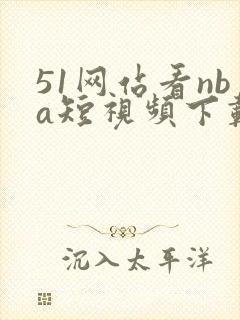 51网佔看nb
a短視頻下載
沉入太平洋